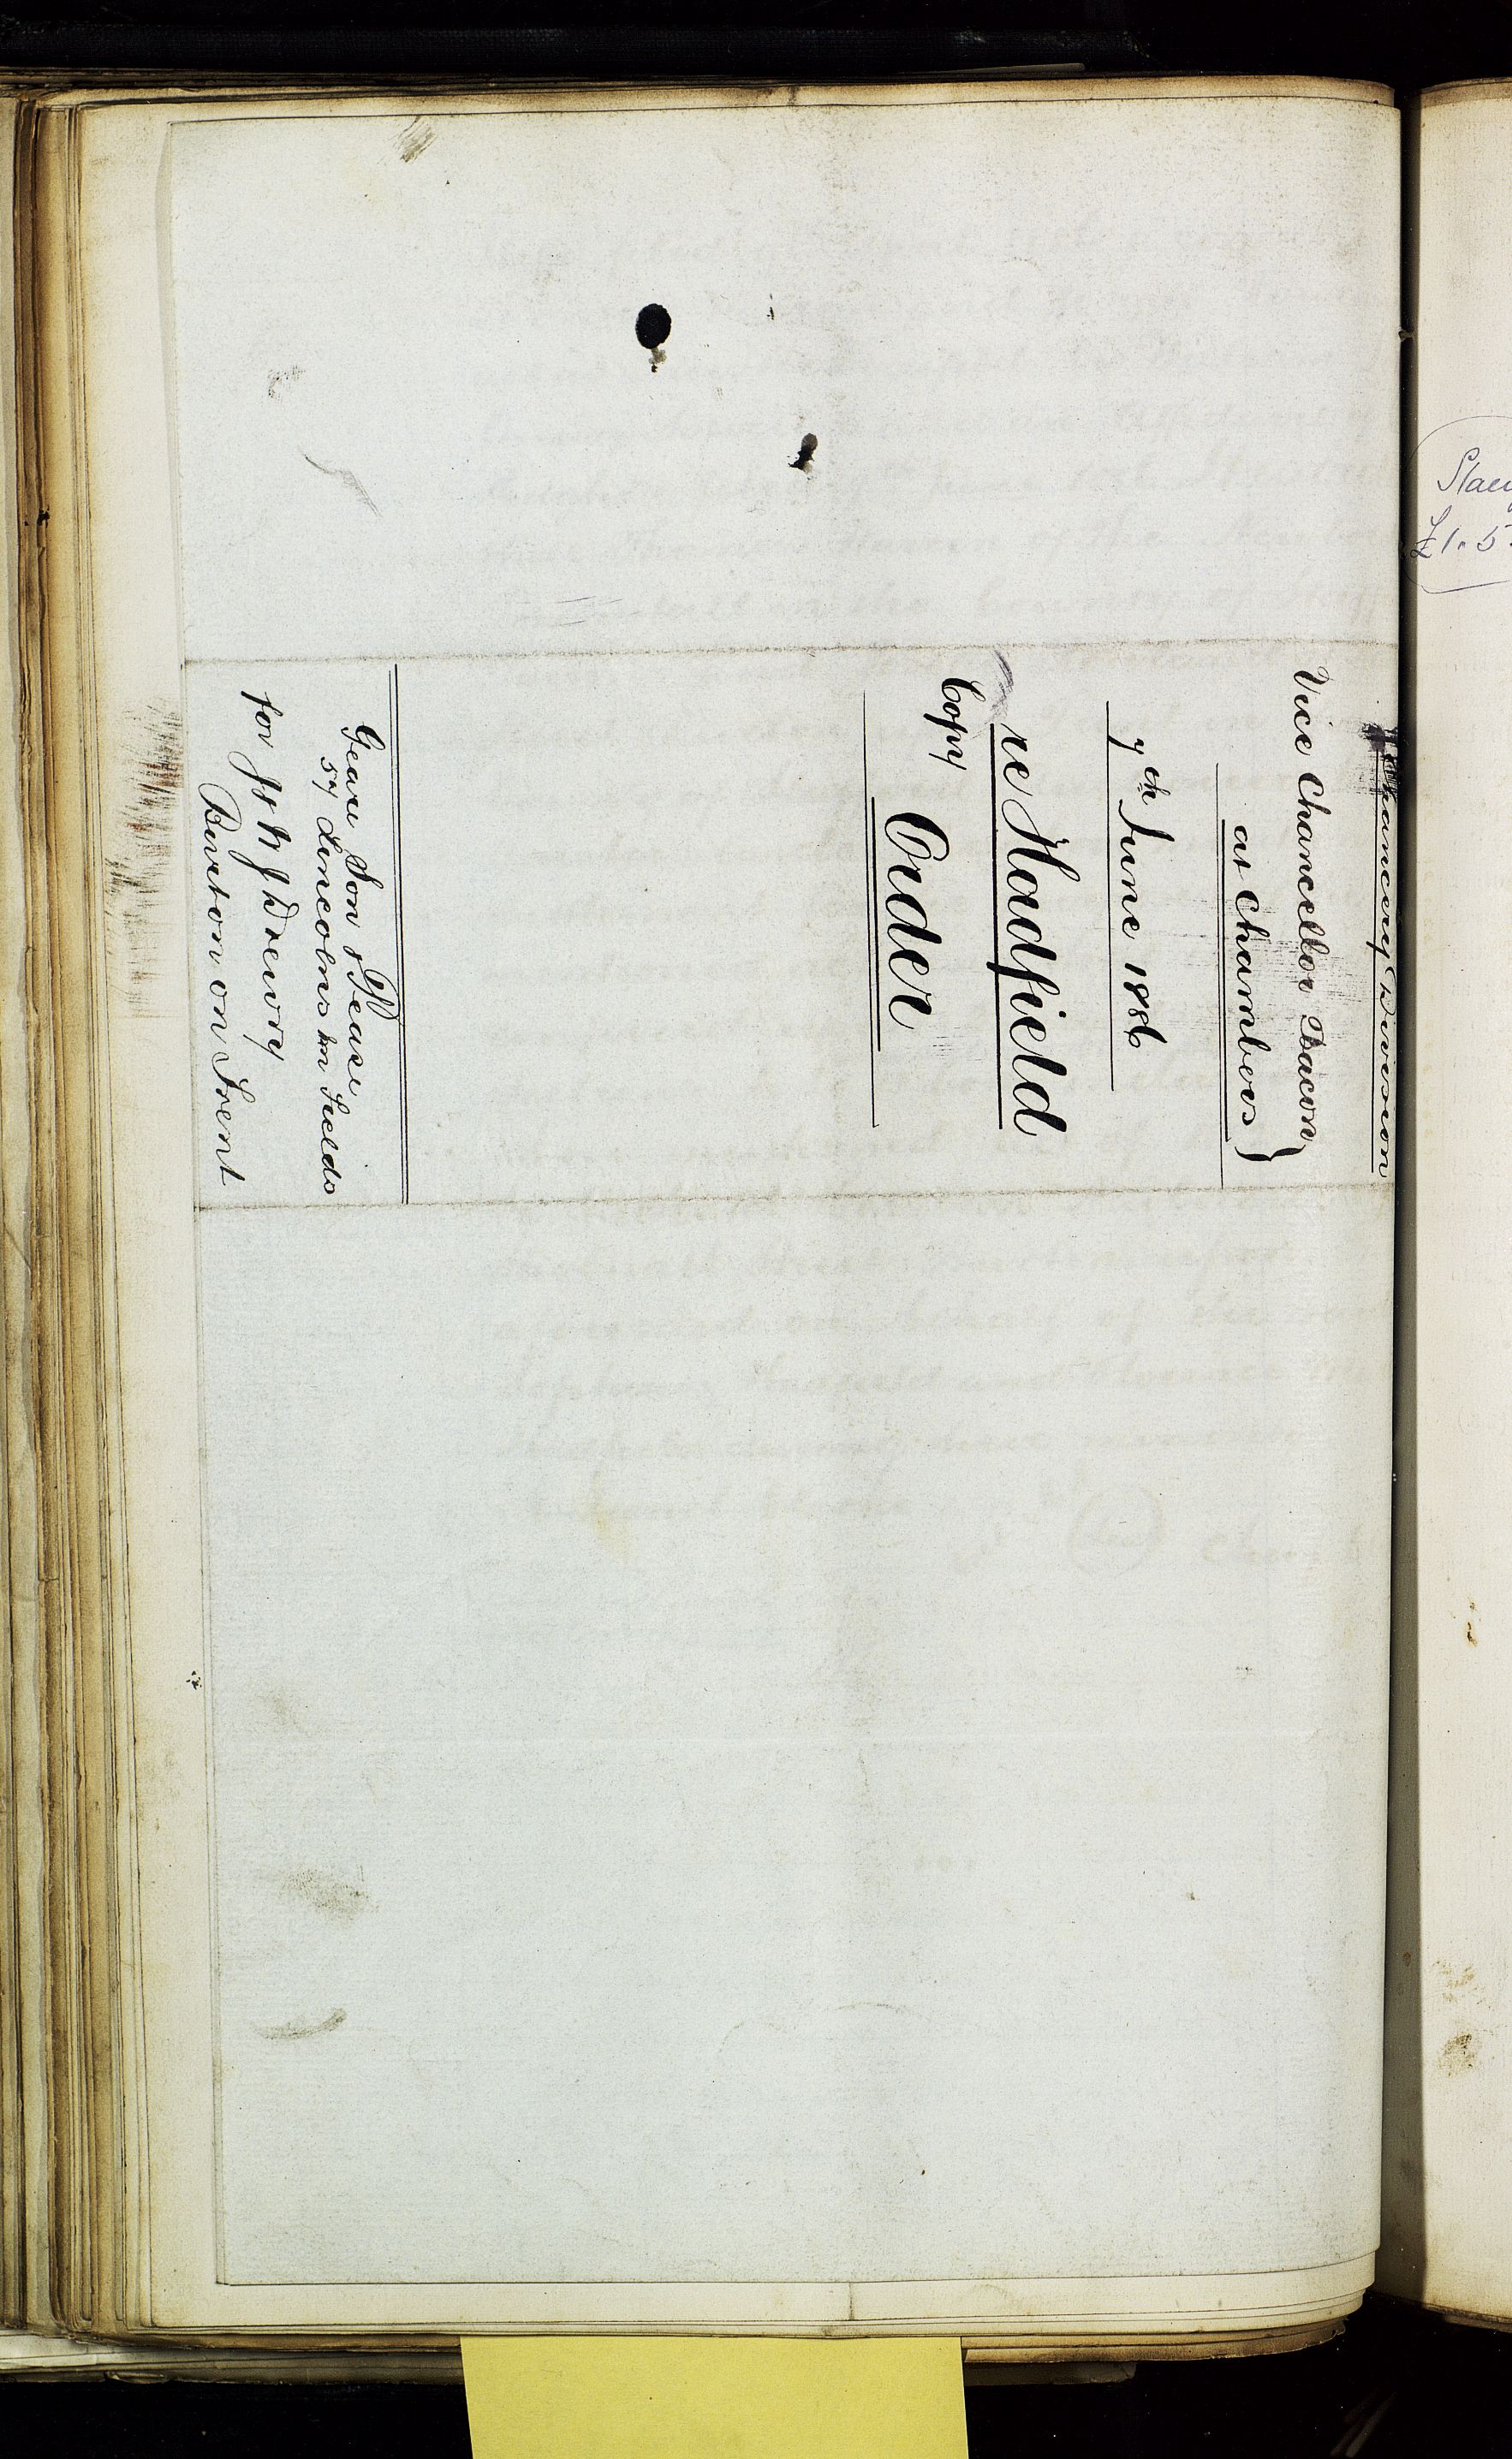 Chancery Division
Vice Chancellor Bacon }
at Chambers }
7th June 1886
re Hadfield
Copy
Order
Geare Son & Pease
57 Lincolns Inn Fields
for Js & J Drewry
Burton on Trent
£1.5